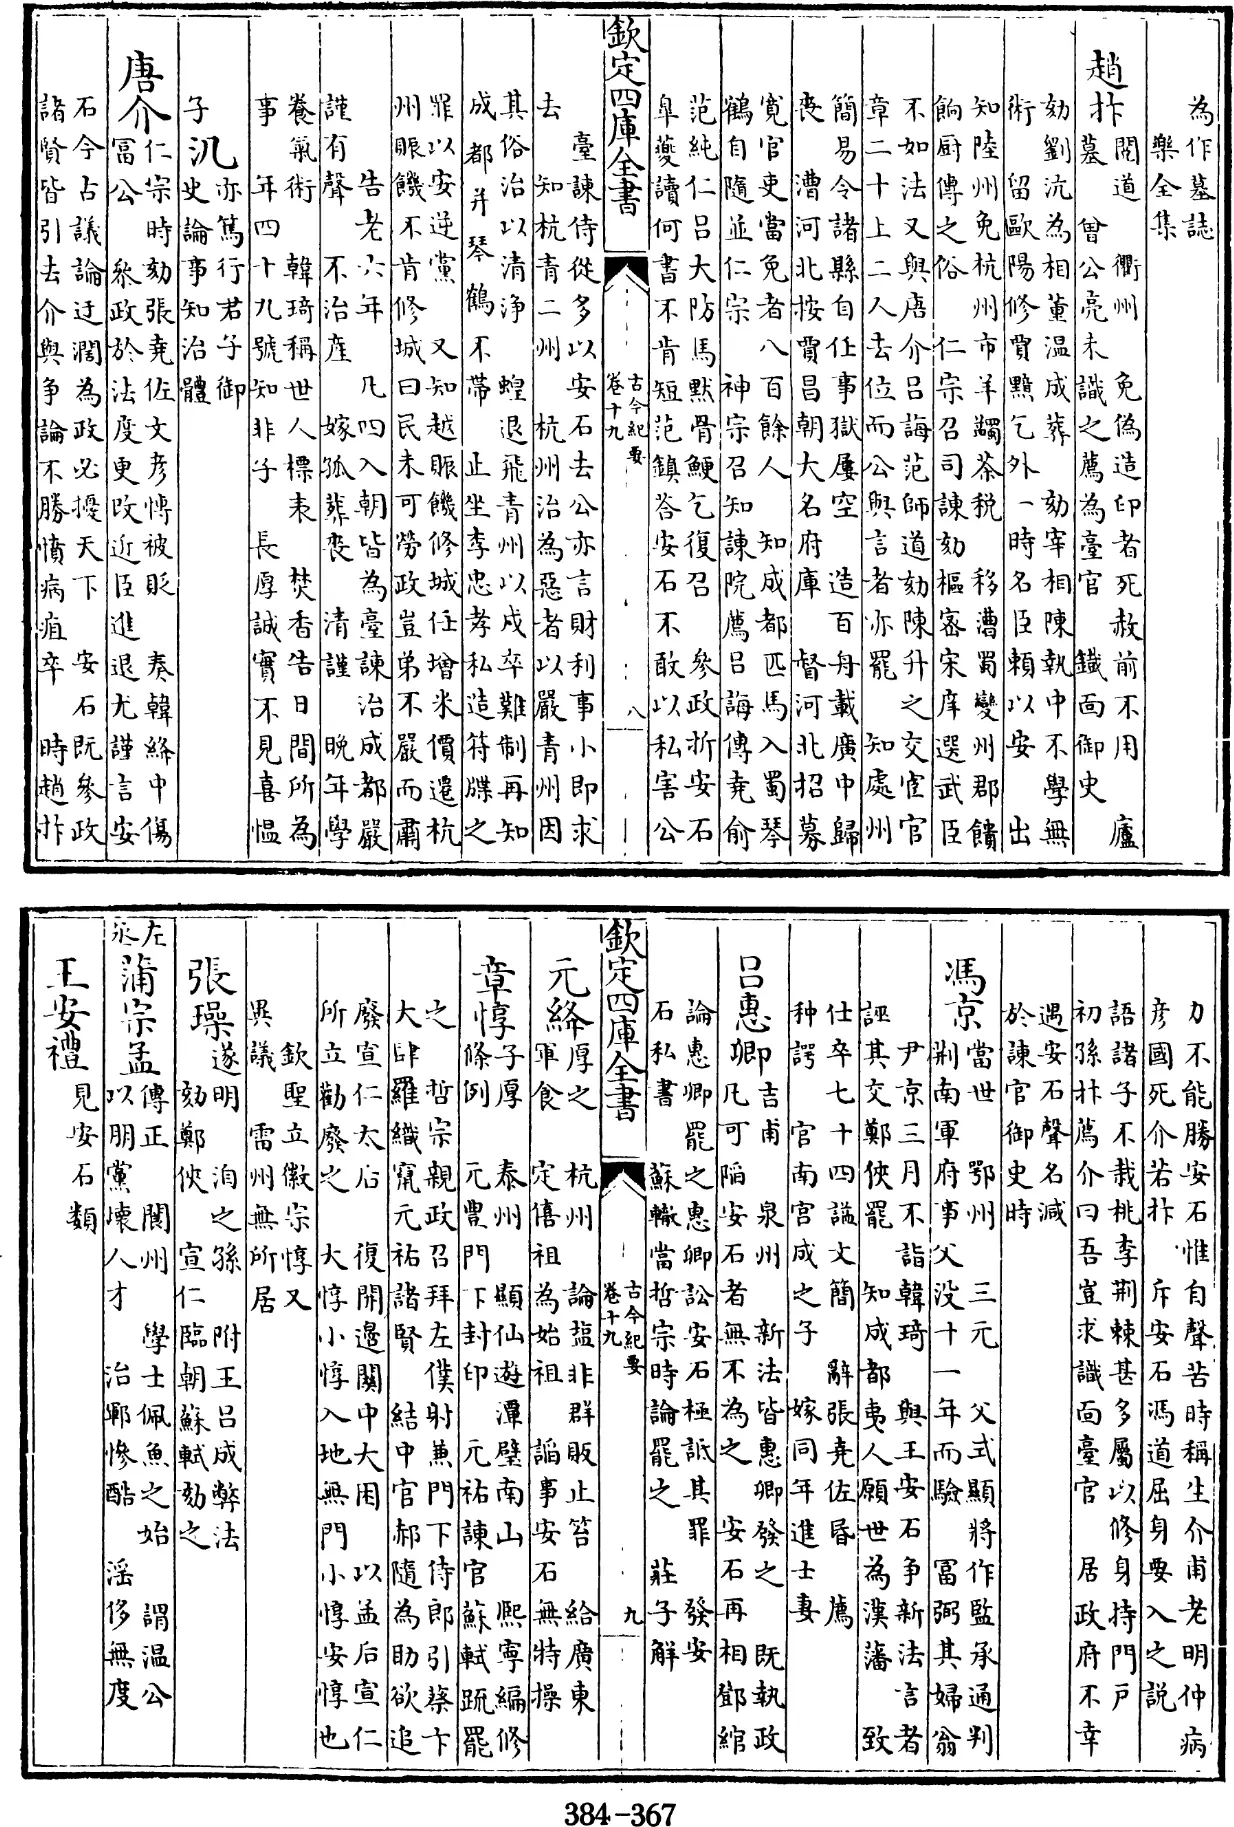 為作墓誌
樂全集
趙抃閱道 衢州 免偽造印者死赦前不用 廬
墓 曾公亮未識之薦為臺官 鐵面御史
劾劉沆為相董温成葬 劾宰相陳執中不學無
術 留歐陽修賈黯乞外一時名臣賴以安 出
知睦州免杭州市羊蠲茶税 移漕蜀變州郡饋
餉厨傳之俗 仁宗召司諫劾樞宻宋庠選武臣
不如法又與唐介吕誨范師道劾陳升之交宦官
章二十上二人去位而公與言者亦罷 知處州
簡易令諸縣自任事獄屢空 造百舟載廣中歸
喪 漕河北按賈昌朝大名府庫 督河北招募
寛官吏當免者八百餘人 知成都匹馬入蜀琴
鶴自隨並仁宗 神宗召知諫院薦吕誨傅堯俞
范純仁吕大防馬默骨鯁乞復召 參政折安石
臯夔讀何書不肯短范鎮荅安石不敢以私害公
欽定四庫全書
古今紀要
卷十九
八
臺諫侍從多以安石去公亦言財利事小即求
去 知杭青二州 杭州治為惡者以嚴青州因
其俗治以清浄 蝗退飛青州以戍卒難制再知
成都并琴鶴不帶 止坐李忠孝私造符牒之
罪以安逆黨 又知越賑饑修城任增米價還杭
州賑饑不肯修城曰民未可勞政豈弟不嚴而肅
告老六年 凡四入朝皆為臺諫治成都嚴
謹有聲 不治産 嫁孤葬喪 清謹 晩年學
養氣術 韓琦稱世人標表 焚香告日間所為
事 年四十九號知非子 長厚誠實不見喜愠
子㞦亦篤行君子御
史論事知治體
唐介仁宗時劾張堯佐文彦愽被貶 奏韓絳中傷
冨公 叅政於法度更改近臣進退尤謹言安
石今占議論迂濶為政必擾天下 安石既參政
諸賢皆引去介與争論不勝憤病疽卒 時趙抃
力不能勝安石惟自聲苦時稱生介甫老明仲病
彦國死介若抃 斥安石馮道屈身要入之説
語諸子不栽桃李荆棘甚多屬以修身持門戸
初孫抃薦介曰吾豈求識面臺官 居政府不幸
遇安石聲名減
於諫官御史時
馮京當世 鄂州 三元 父式顯將作監承通判
荆南軍府事父没十一年而驗 冨弼其婦翁
尹京三月不詣韓琦 與王安石争新法言者
誣其交鄭俠罷 知成都夷人願世為漢藩 致
仕卒七十四諡文簡 辭張堯佐昏 薦
种諤 官南宫成之子 嫁同年進士妻
吕惠卿吉甫 泉州 新法皆惠卿發之 既執政
凡可陷安石者無不為之 安石再相鄧綰
論惠卿罷之惠卿訟安石極詆其罪 發安
石私書 蘇轍當哲宗時論罷之 莊子解
欽定四庫全書
古今紀要
卷十九
九
元絳厚之 杭州 論鹽非群販止笞 給廣東
軍食 定僖祖為始祖 謟事安石無特操
章惇子厚 泰州 顯仙遊潭壁南山 熈寧編修
條例 元豐門下封印 元祐諫官蘇軾䟽罷
之 哲宗親政召拜左僕射兼門下侍郎引蔡卞
大肆羅織竄元祐諸賢 結中官郝隨為助欲追
廢宣仁太后 復開邉關中大困 以孟后宣仁
所立勸廢之 大惇小惇入地無門小惇安惇也
欽聖立徽宗惇又
異議 雷州無所居
張璪邃明 洎之孫 附王吕成弊法
劾鄭俠 宣仁臨朝蘇軾劾之
左丞
蒲宗孟傳正 閬州 學士佩魚之始 謂温公
以朋黨壞人才 治鄆慘酷 滛侈無度
王安禮
見安石類
384-367